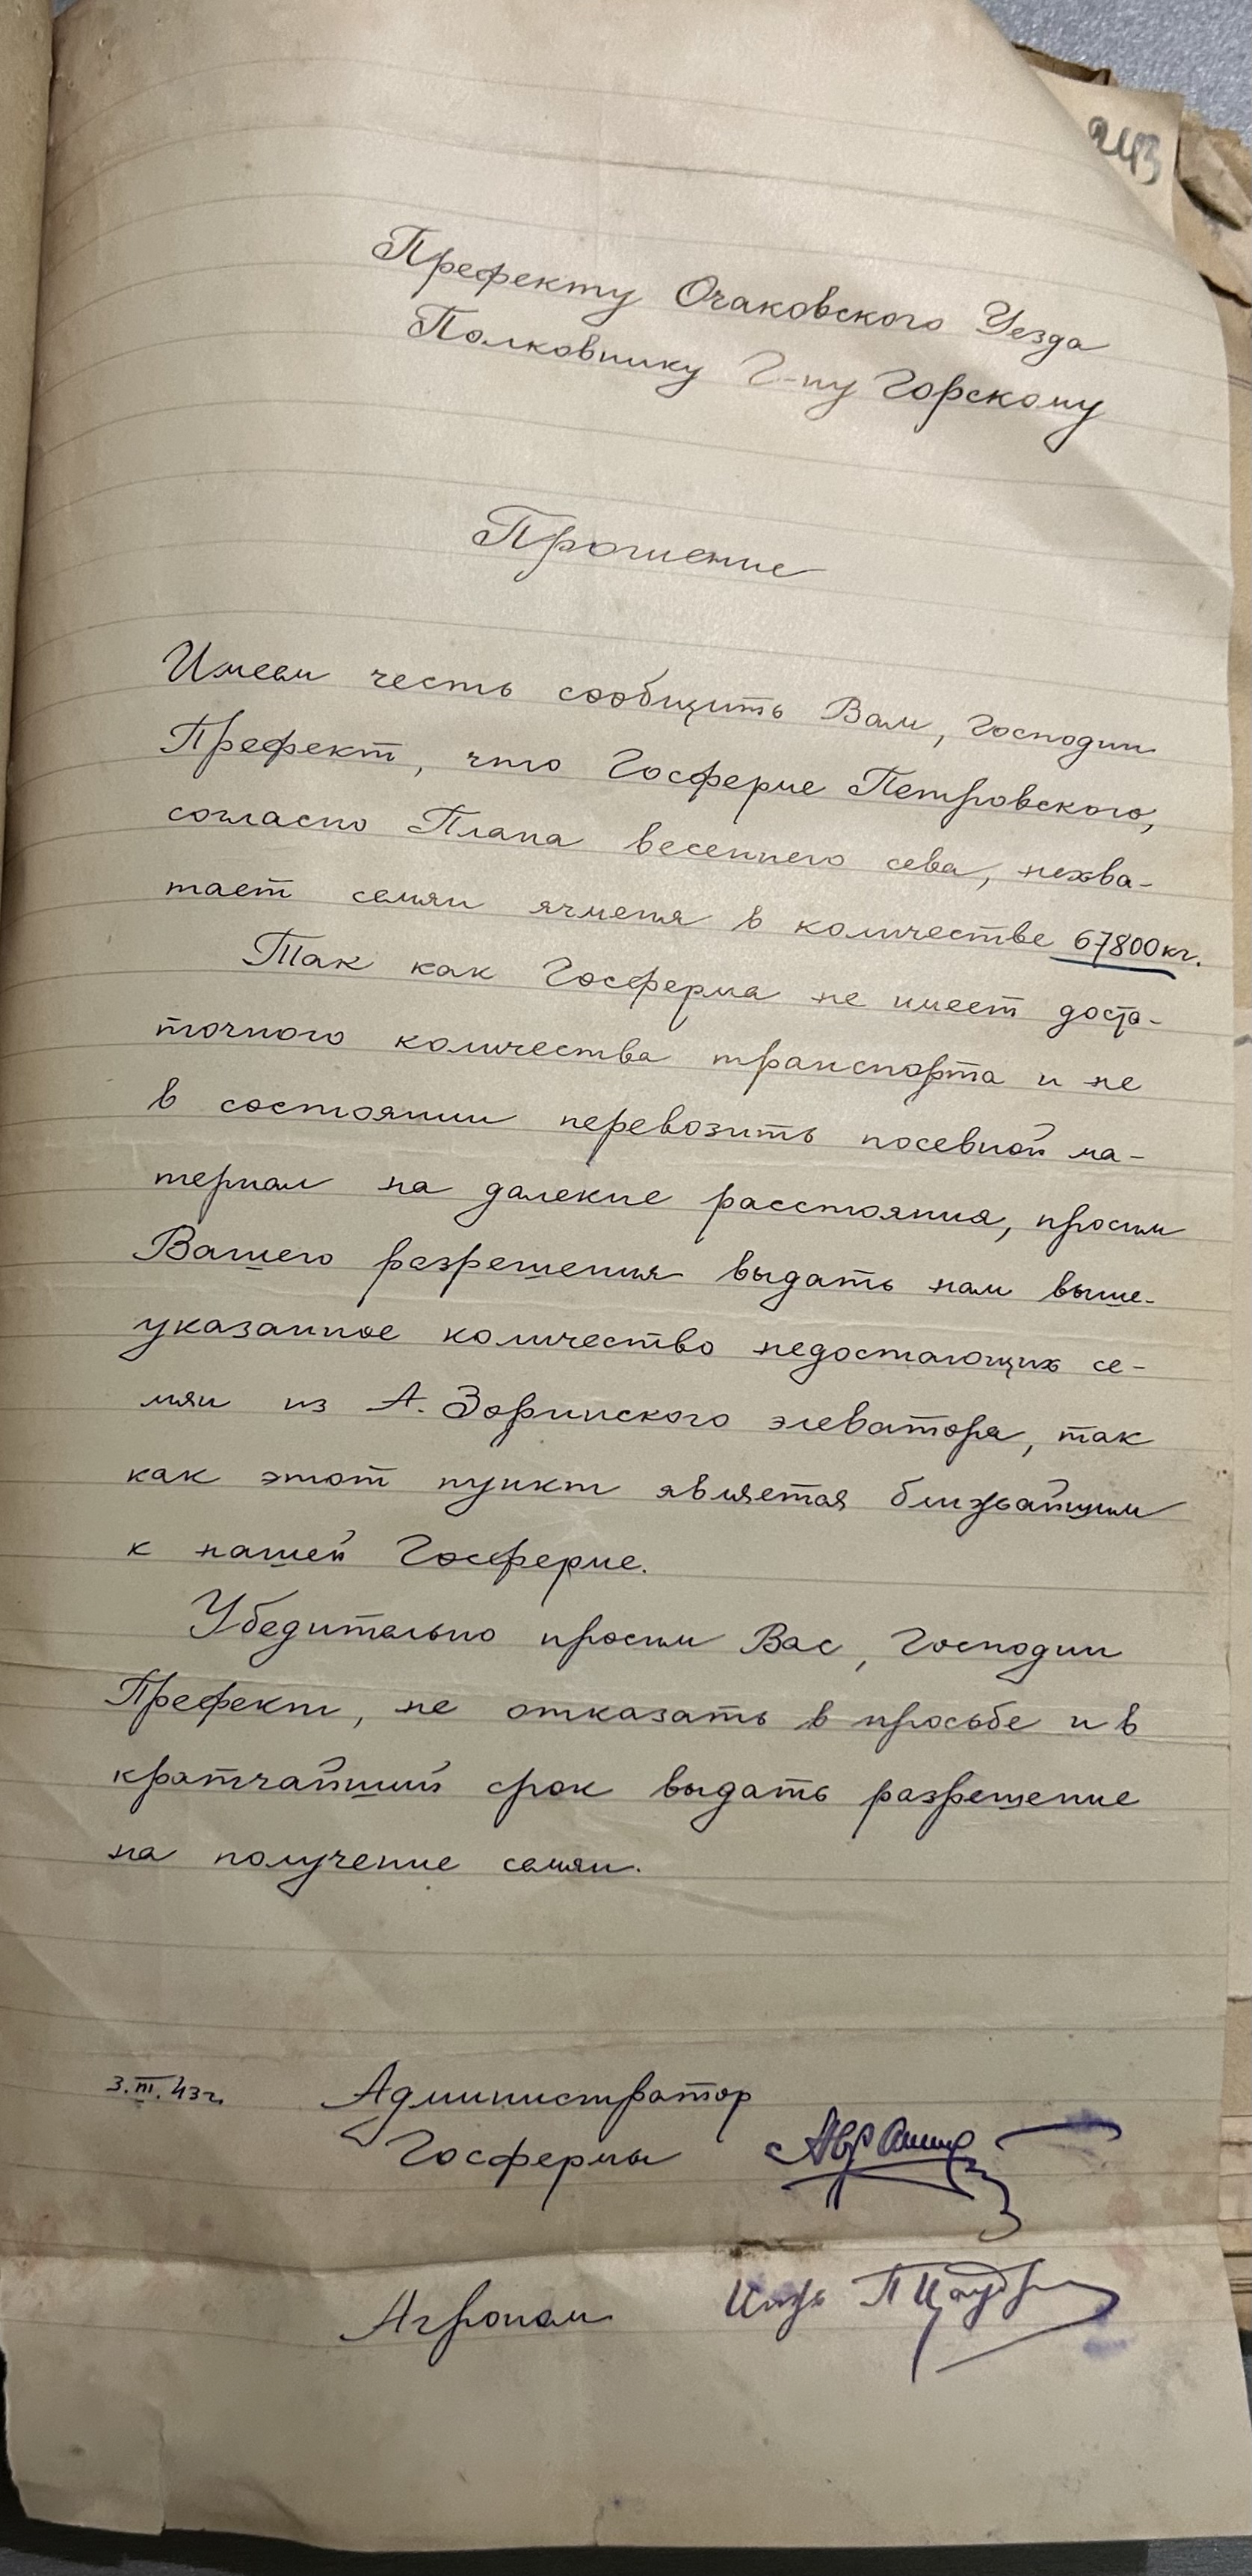 243
Префекту Очаковского Уезда
Полковнику Г-ну Горскому
Прошение
Имеем честь сообщить Вам, Господин
Префект, что Госферме Петровского,
согласно Плана весеннего сева, нехва-
тает семян ячменя в количестве 67800 кг.
Так как Госферма не имеет доста-
точного количества транспорта и не
в состоянии перевозить посевной ма-
териал на далекие расстояния, просим
Вашего разрешения выдать нам выше-
указанное количество недостающих се-
мян из А. Зоринского элеватора, так
как этот пункт является ближайшим
к нашей Госферме.
Убедительно просим Вас, Господин
Префект, не отказать в просьбе и в
кратчайший срок выдать разрешение
на получение семян.
3.III.43г. Администратор
Госфермы
Агроном